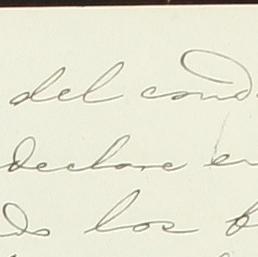 del cond
declare en
do los